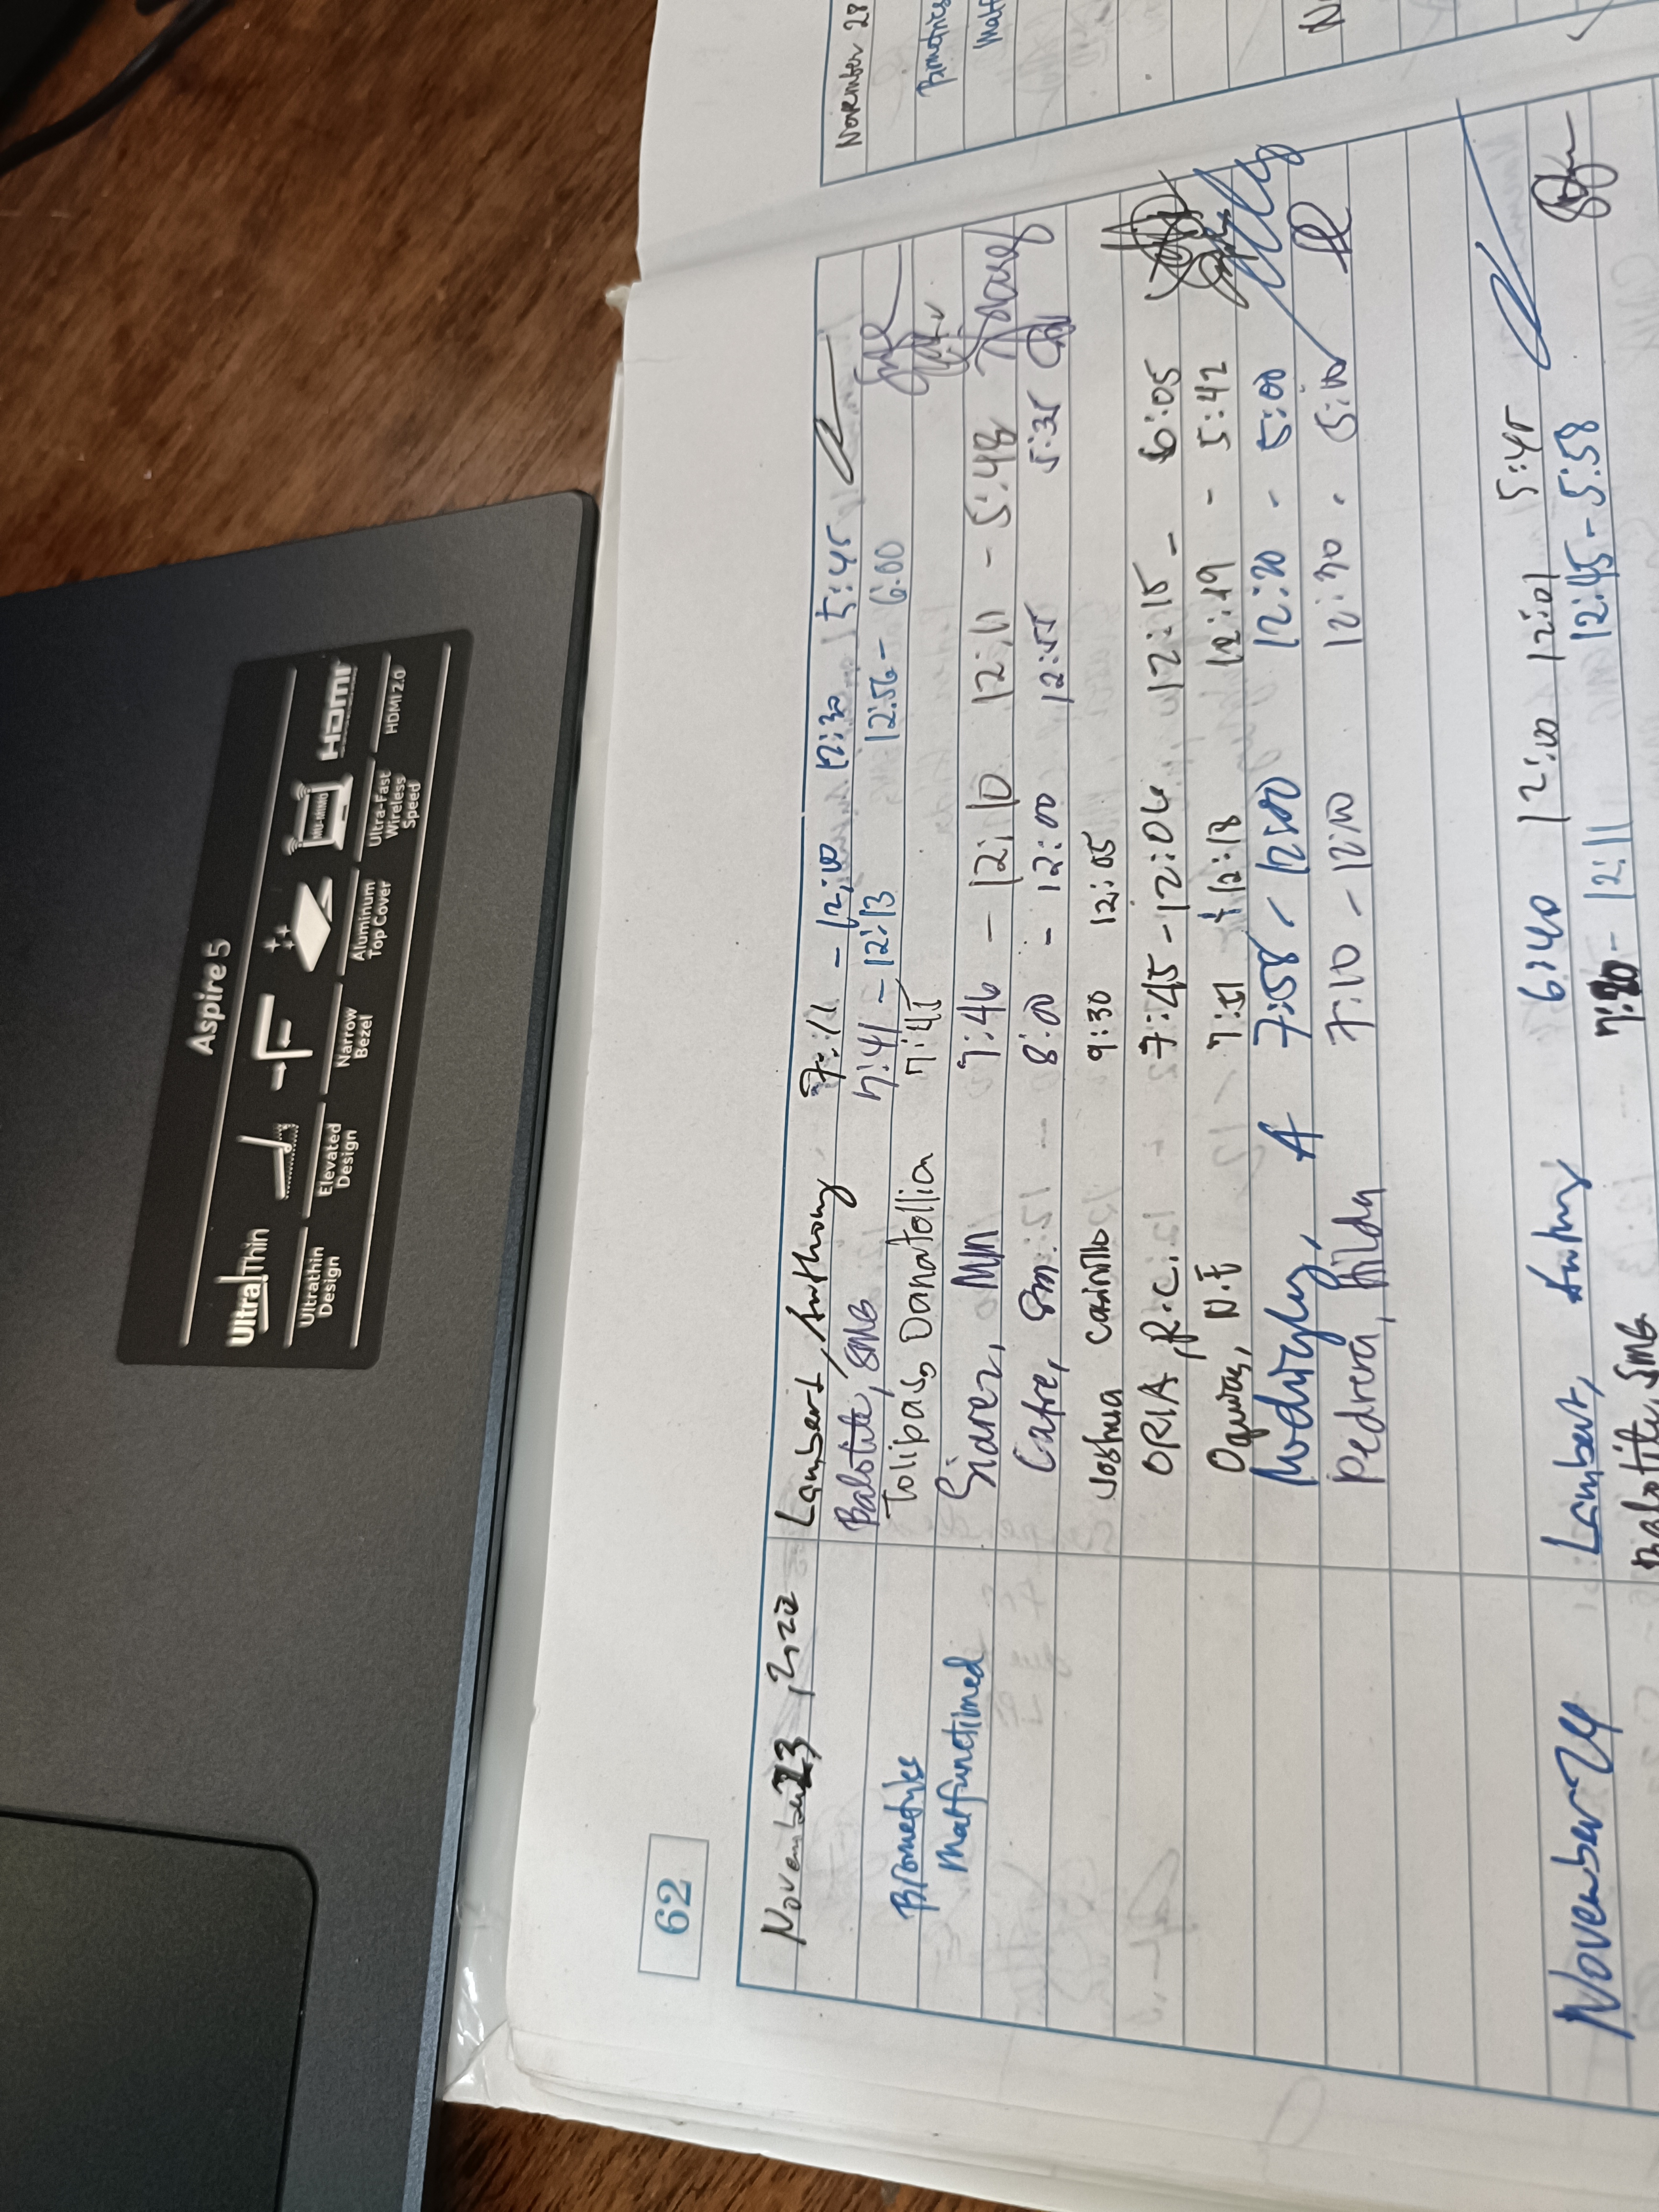 Aspire 5
UltraThin
MU-MIMO
HDMI
Ultrathin Design
Elevated Design
Narrow Bezel
Aluminum Top Cover
Ultra-Fast Wireless Speed
HDMI 2.0
62
November 23, 202 Lambert, Anthony 7:11 - 12:00 12:30 5:45
Balotite, SMB 7:41 - 12:13 12:56 - 6:00
Biometrics Tolipas, Danatollia 7:45
Malfunctioned Siarez, MM 7:46 - 12:10 12:11 - 5:48
Catre, Sm. 8:00 - 12:00 12:55 5:35
Joshua Canillo 9:30 12:05
ORIA, R.C. 7:45 - 12:06 12:15 - 6:05
N.F 7:51 12:18 12:19 - 5:42
A 7:58 - 12:00 12:30 - 5:00
Pedrera, Hilda 7:10 - 12:00 12:30 - 5:00
November 24 Lambert, Anthony 6:40 12:00 12:01 5:45
Balotite, SMB 7:30 - 12:11 12:45 - 5:58
November 28
Biometrics